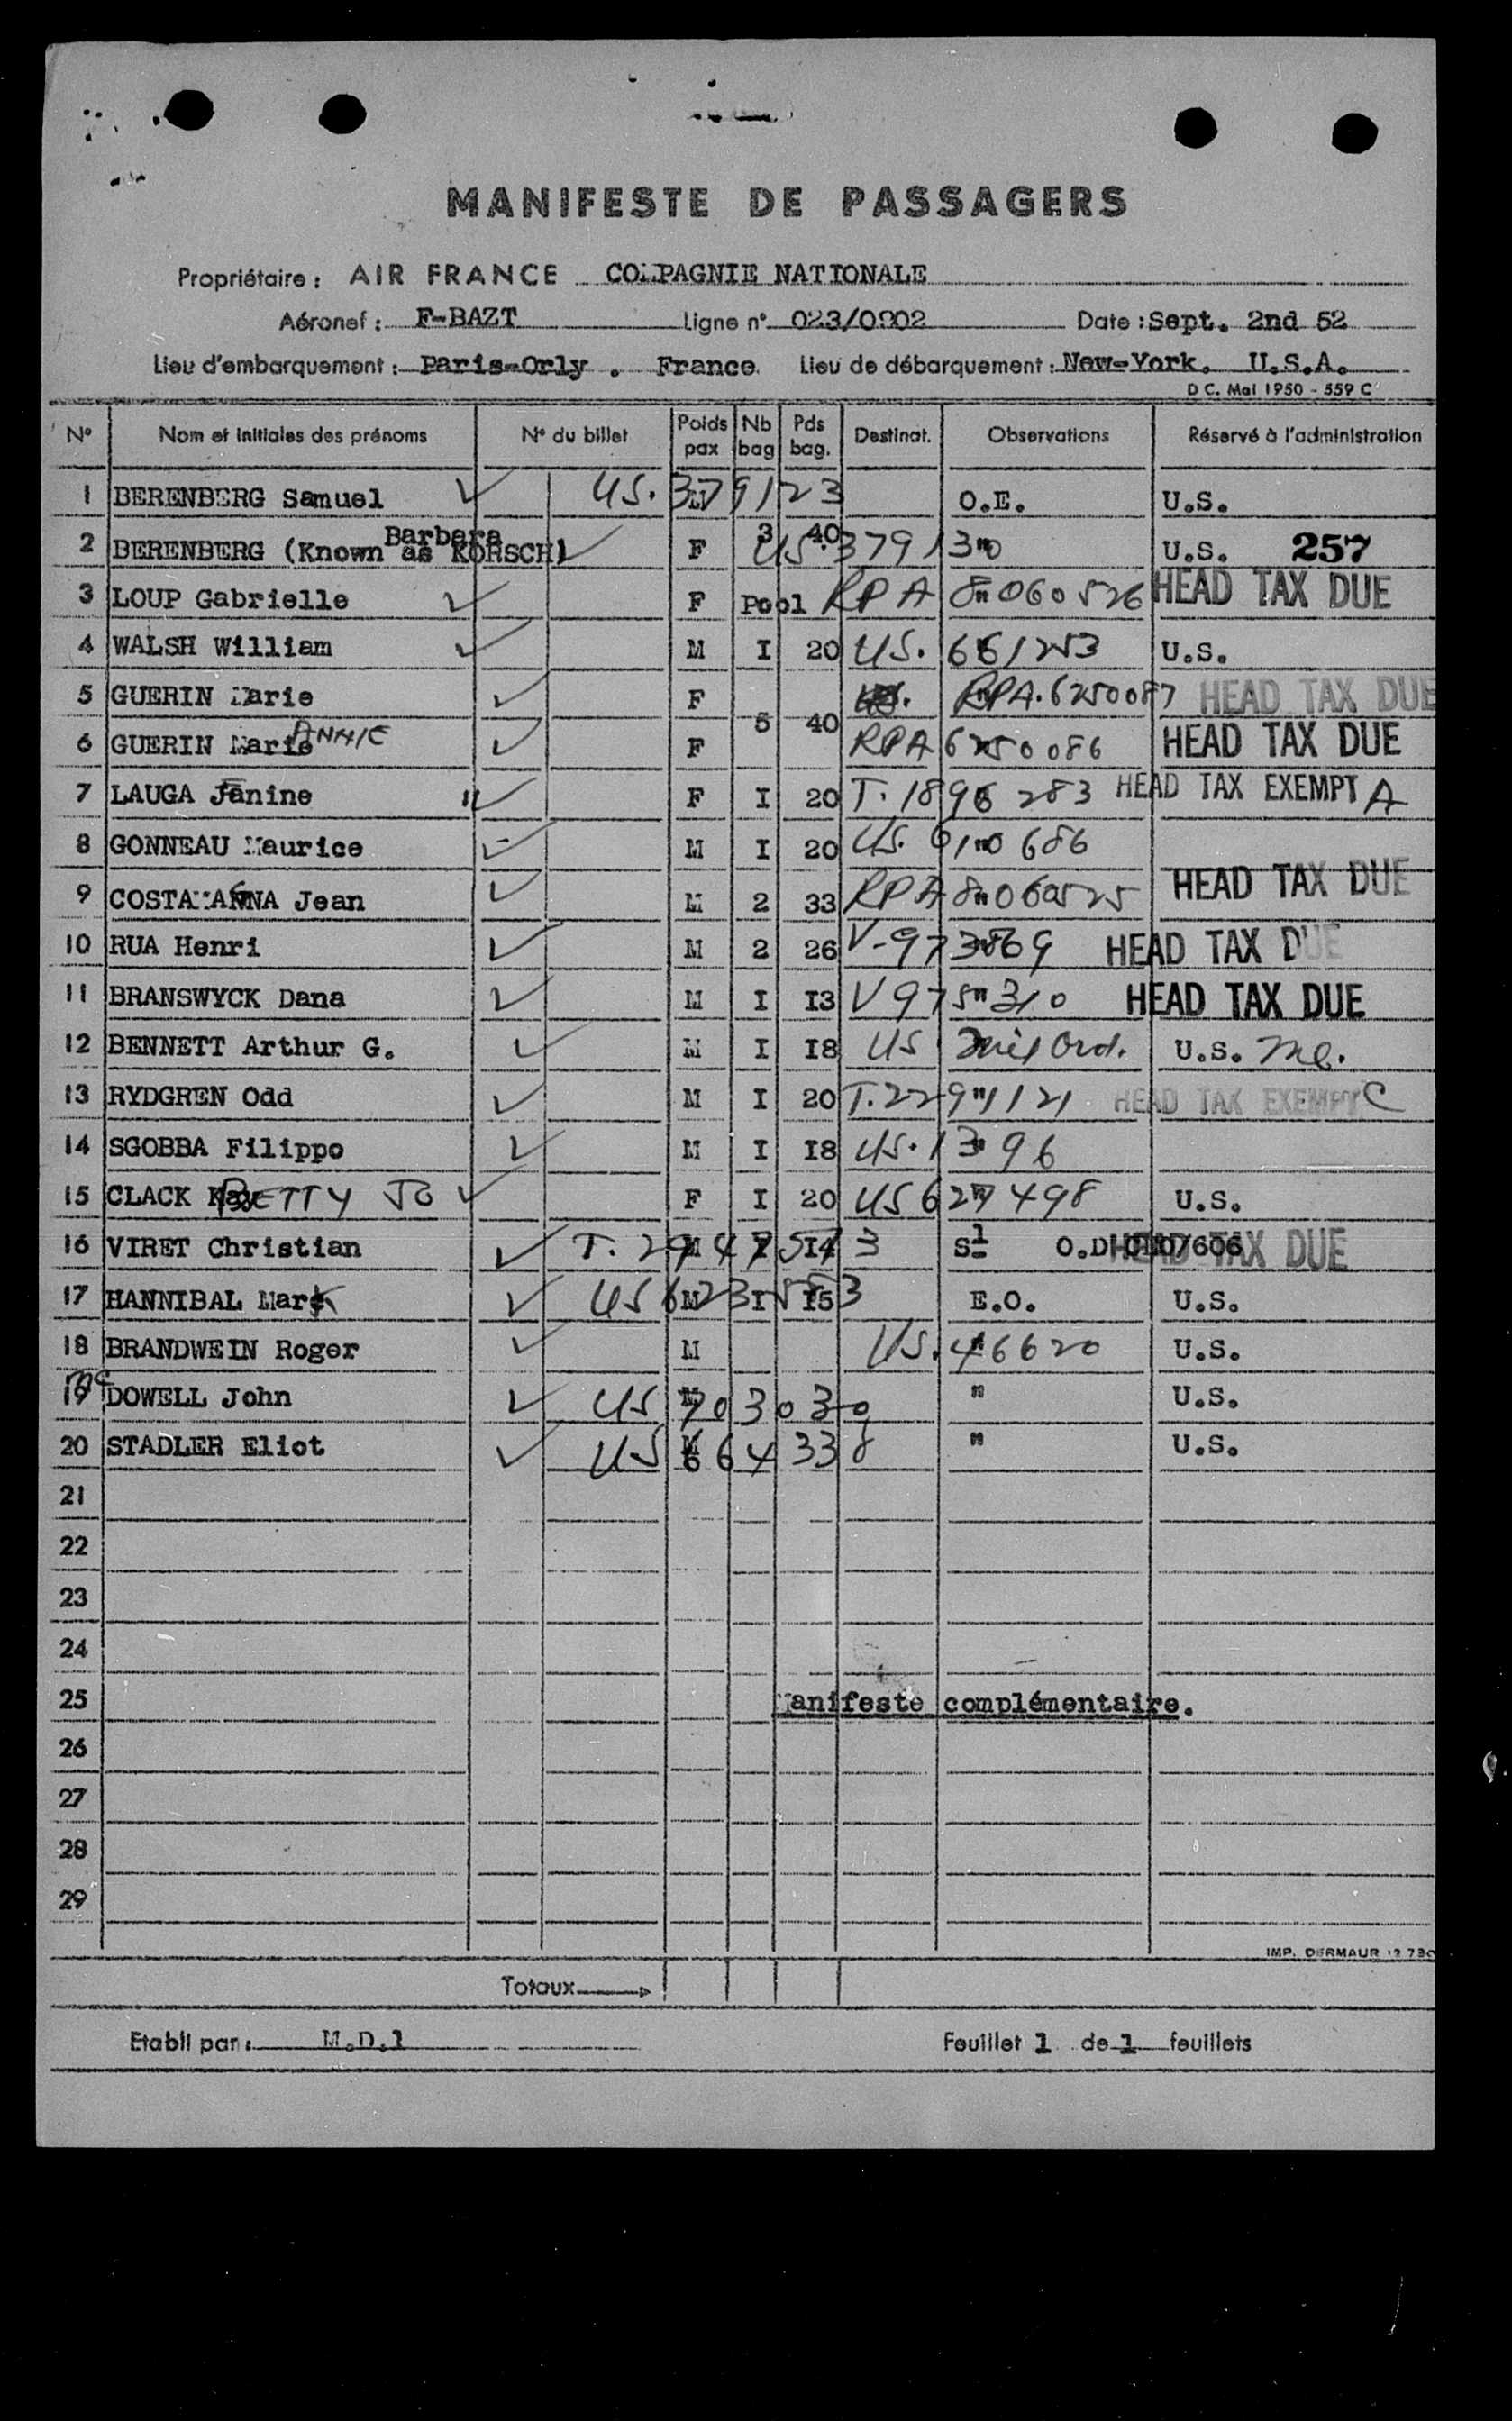 MANIFESTE DE PASSAGERS
Propriétaire : AIR FRANCE COMPAGNIE NATIONALE
Aéronef : F-BAZT Ligne n° 023/0902 Date : Sept. 2nd 52
Lieu d'embarquement : Paris-Orly . France Lieu de débarquement : New-York. U.S.A.
D C. Mai 1950 - 559 C
N° Nom et initiales des prénoms N° du billet Poids pax Nb bag Pds bag. Destinat. Observations Réservé à l'administration
1 BERENBERG Samuel ✓ US. 379123 M O.E. U.S.
2 BERENBERG (Known as Barbara KORSCH) ✓ F 3 40 US. 379130 " U.S. 257
3 LOUP Gabrielle ✓ F Pool RPA 8060526 " HEAD TAX DUE
4 WALSH William ✓ M I 20 US. 661253 " U.S.
5 GUERIN Marie ✓ F RPA. 6250087 " HEAD TAX DUE
6 GUERIN Marie ANNIE ✓ F 5 40 RPA 6250086 " HEAD TAX DUE
7 LAUGA Janine ✓ F I 20 T. 1896283 HEAD TAX EXEMPT A
8 GONNEAU Maurice ✓ M I 20 US. 610686 "
9 COSTAMAGNA Jean ✓ M 2 33 RPA 8060525 " HEAD TAX DUE
10 RUA Henri ✓ M 2 26 V-973869 " HEAD TAX DUE
11 BRANSWYCK Dana ✓ M I I3 V975310 " HEAD TAX DUE
12 BENNETT Arthur G. ✓ M I I8 US Mil Ord. U.S. Me.
13 RYDGREN Odd ✓ M I 20 T. 2291121 " HEAD TAX EXEMPT C
14 SGOBBA Filippo ✓ M I I8 US. 1396 "
15 CLACK BETTY JO ✓ F I 20 US 627498 " U.S.
16 VIRET Christian ✓ T. 2947573 M I I4 S1 O.D 0107606 HEAD TAX DUE
17 HANNIBAL Mark ✓ US 6231583 M I I5 E.O. U.S.
18 BRANDWEIN Roger ✓ M US. 46620 " U.S.
19 Mc DOWELL John ✓ US 703030 M " U.S.
20 STADLER Eliot ✓ US 664338 M " U.S.
21
22
23
24
25 Manifeste complémentaire.
26
27
28
29
IMP. DERMAUR
Totaux
Etabli par : M.D.1 Feuillet 1 de 1 feuillets